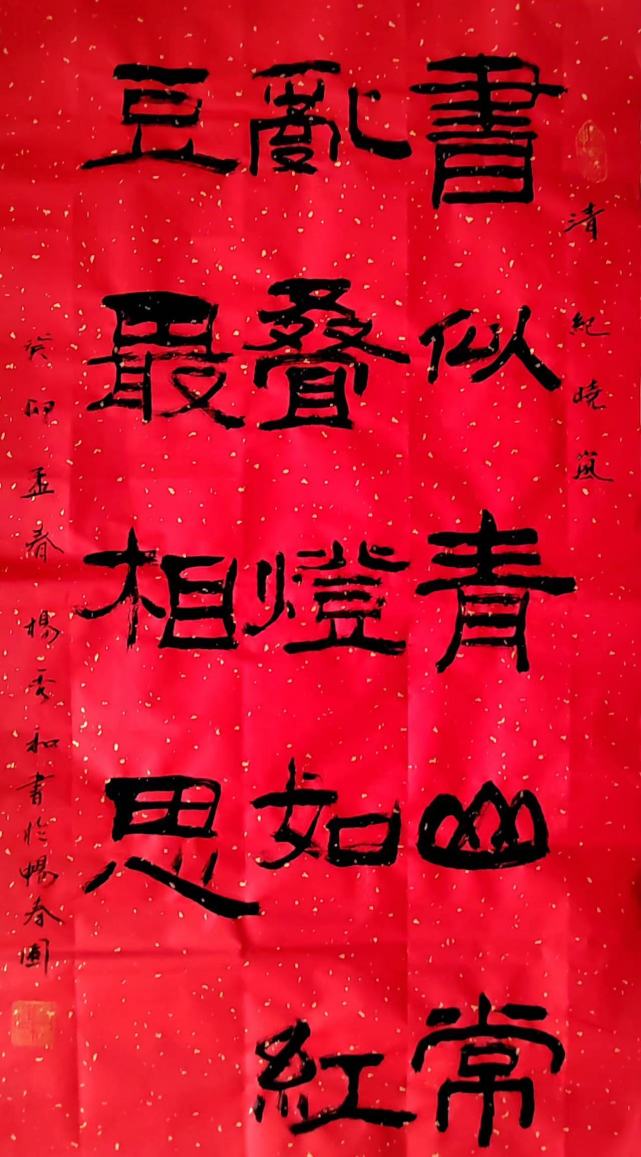 清 紀曉嵐
書似青山常
亂叠燈如紅
豆最相思
癸卯孟春楊秀和書於暢春園